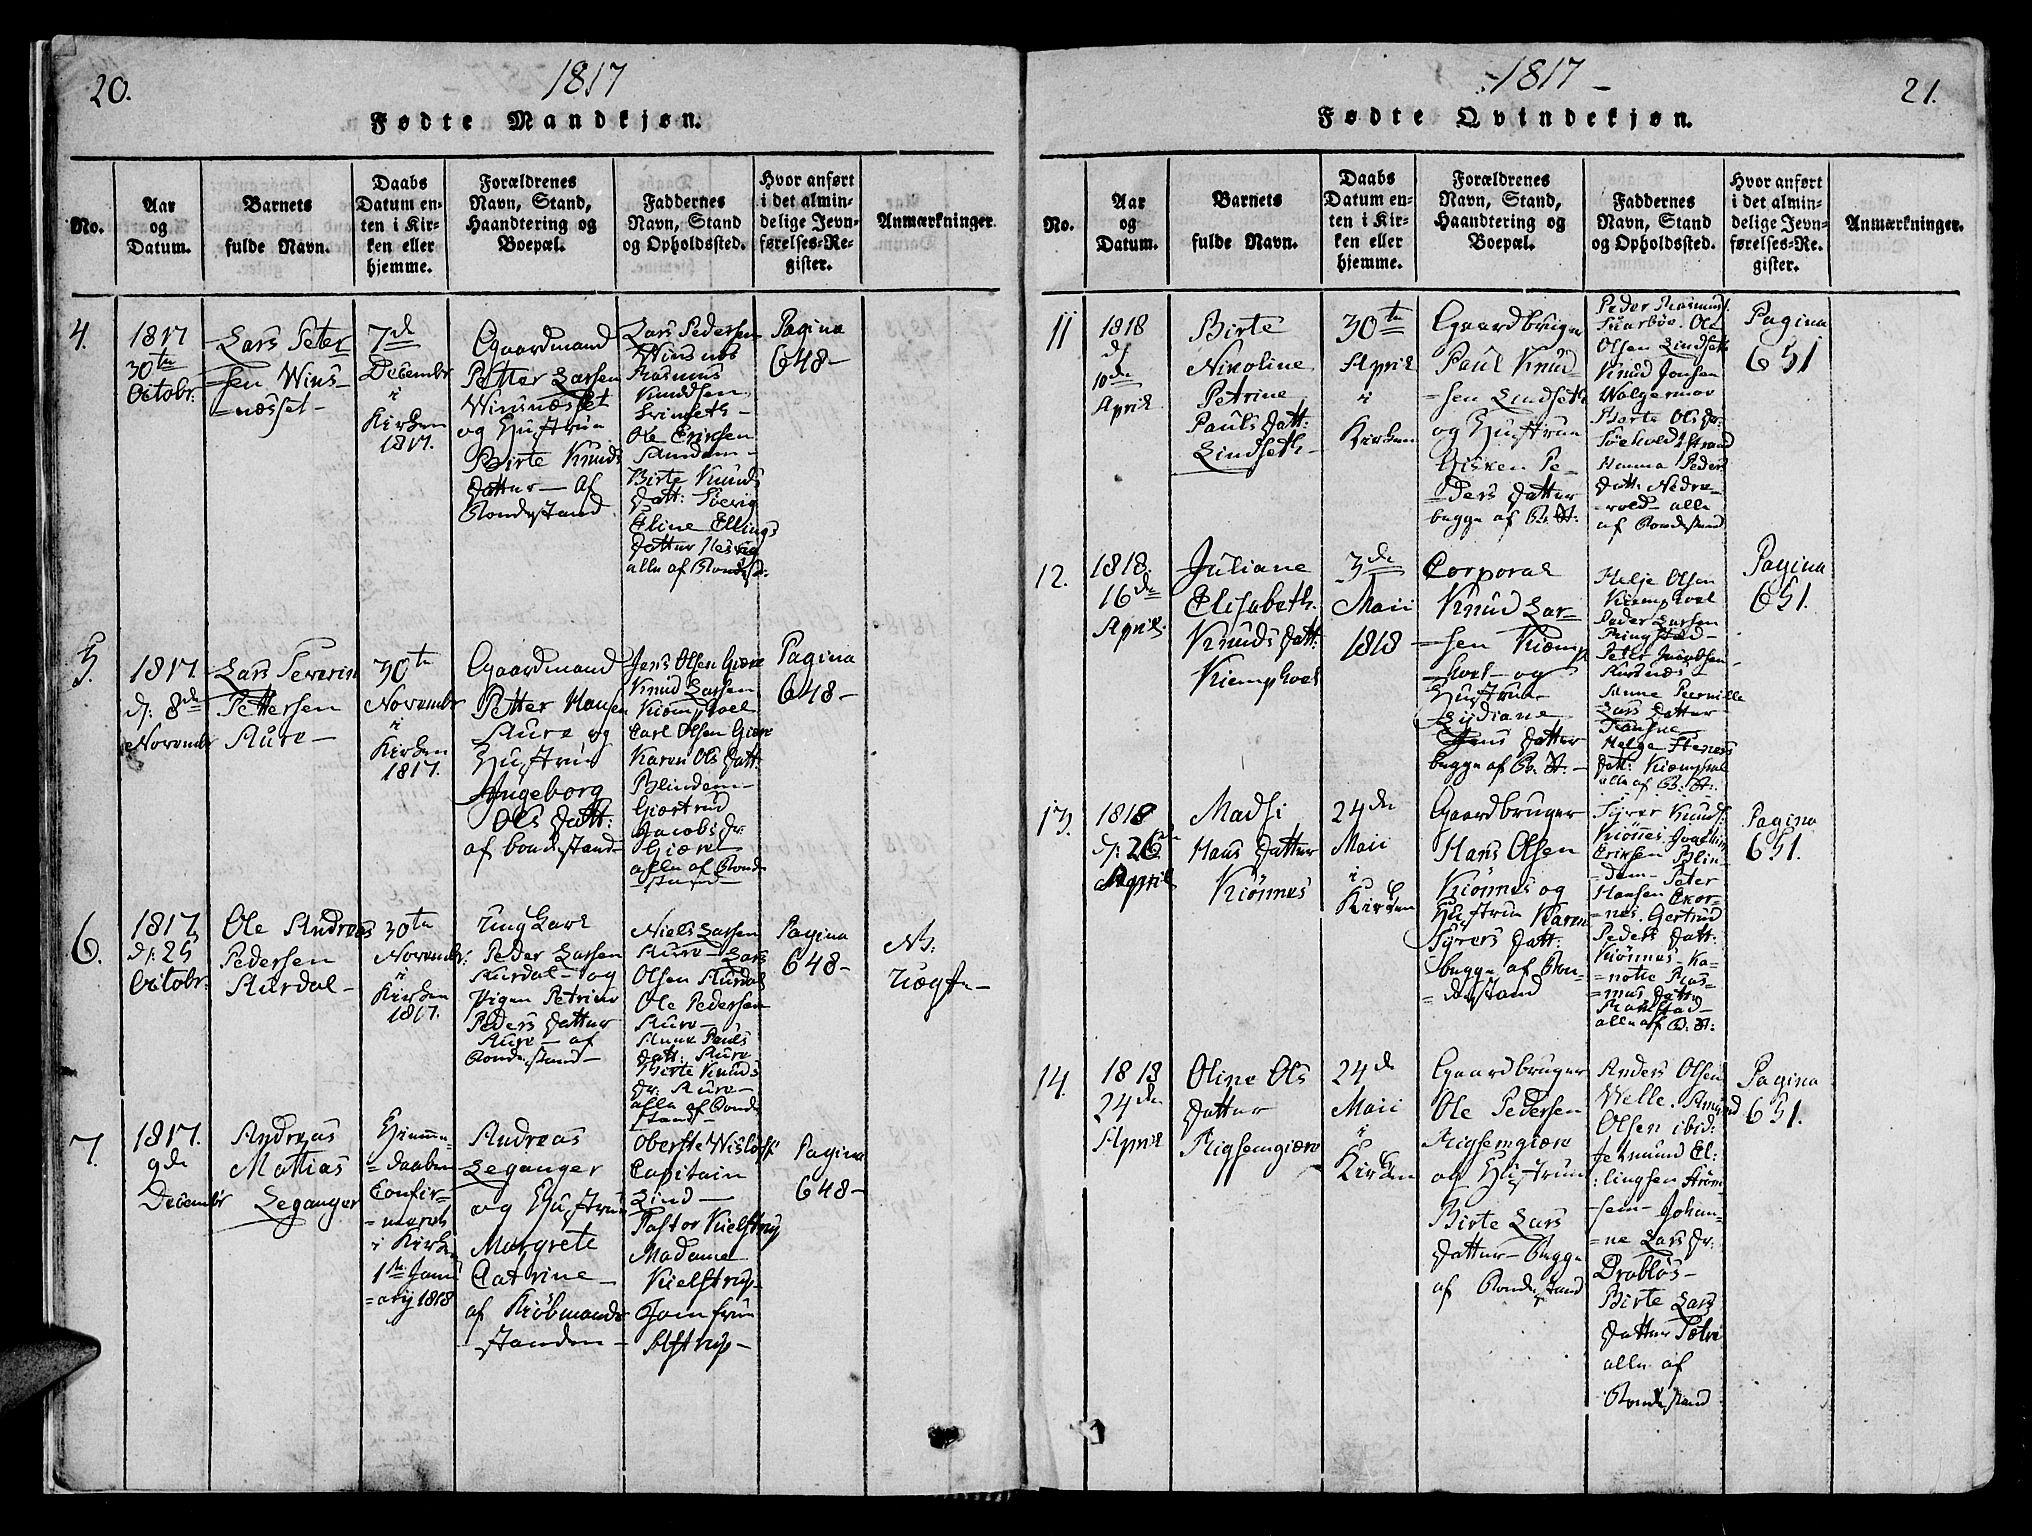 20.
1817
Fødte Mandkjøn.
No.
Aar
og
Datum.
Barnets
fulde Navn.
Daabs
Datum en-
ten i Kir-
ken eller
hjemme.
Forældrenes
Navn, Stand,
Haandtering og
Boepæl.
Faddernes
Navn, Stand
og Opholdssted.
Hvor anført
i det almin-
delige Jevn-
førelses-Re-
gister.
Anmærkninger.
4.
1817
30te
Octobr:
Lars Peter
=sen Wins-
=næsset-
7de
Decembr
i
Kirken
1817.
Gaardmand
Petter Larsen
Winsnæsset
og Hustrue
Birte Knuds
datter- af
Bondestand
Lars Pedersen
Winsnes
Rasmus
Knudsen
Ole Eriksen
Birte Knuds
datt:
Eline Ellings
datter
alle af Bondest:
Pagina
648-
5.
1817.
d: 8de
Novembr
Lars Severin
Pettersen
Aure-
30te
Novembr
i
Kirken
1817.
Gaardmand
Petter Hansen
Aure og
Hustrue
Ingeborg
Ols datt:
af bondestand
Jens Olsen Giære
Knud Larsen
Kiemphoel
Carl Olsen Giære
Karen Ols datt:
Blindem-
Giærtrud
Jacobs dr.
Giære
alle af Bonde
stand-
Pagina
648-
6.
1817
d: 25
Octobr:
Ole Andreas
Pedersen
Aurdal-
30te
Novembr:
i
Kirken
1817.
Ung Karl
Peder Larsen
Aurdal- og
Pigen Petrine
Peders datter
Aure- af
Bondestand-
Niels Larsen
Aure- Lars
Olsen Aurdal
Ole Pedersen
Aure-
Anne Pauls
datt: Aure
Birte Knuds
dr. Aure-
alle af Bonde
stand-
Pagina
648-
NB:
Uægte-
7.
1817.
9de
Decembr
Andreas
Mattias
Leganger
Hiemme-
=daaben
Confir-
=meret
i Kirken
1te Janu
=arij 1818
Andreas
Leganger
og Hustrue
Margrete
Catrine-
af Kiøbmands
standen-
Oberste Wisløff
Capitain
Lind-
Pastor Kielstrup
Madame
Kielstrup-
Jomfrue
Pagina
648-
1817-
21.
Fødte Qvindekjøn.
No.
Aar
og
Datum.
Barnets
fulde Navn.
Daabs
Datum en-
ten i Kir-
ken eller
hjemme.
Forældrenes
Navn, Stand,
Haandtering og
Boepæl.
Faddernes
Navn, Stand
og Opholdssted.
Hvor anført
i det almin-
delige Jevn-
førelses-Re-
gister.
Anmærkninger.
11
1818
d:
10de
April
Birte
Nikoline
Petrine
Pauls datt:
Lindseth-
30te
April
i
Kirken
Gaardbruger
Paul Knud
=sen Lindseth
og Hustrue
Gisken Pe-
=ders datter
begge af B. St:
Peder Rasmus
Olsen Lindseth
Knud Jonsen
Hanna Peders
datt: Nedre-
=vold- alle
af Bondestand
Pagina
651
12.
1818.
16de
April.
Juliane
Elisabeth.
Knuds datt:
Kiemphoel
3de
Maii
1818
Corporal
Knud Lar-
=sen Kiemp
=hoel- og
Hustrue
Lydiane
Jens datter
begge af B. St.-
Helje Olsen
Kiemphoel
Peder Larsen
Ringstad-
Peter Jacobsen-
Anne Pernille
Lars datter
datt: Kiemphoel
alle af B: St:
Pagina
651.
13.
1818
d: 26de
April
Madsi
Hans datter
Kiønnes
24de
Maii
i
Kirken
Gaardbruger
Hans Olsen
Kiønnes og
Hustrue Karen
Syvers datt:
begge af Bon-
=destand
Syver Knuds:
Kiønnes. Joachim
Eriksen Blin-
=dem- Peter
Hansen Ekor-
=nes. Gertrud
Peders datt:
Kiønnes- Ka-
=notte Ras-
=mus datter
alle af B. St:
Pagina
651.
14.
1818
24de
April
Oline Ols
datter
Rigsemgiære
24de
Maii
i
Kirken
Gaardbruger
Ole Pedersen
Rigsemgiære
og Hustrue
Birte Lars
datter- Begge
af Bondestand
Anders Olsen
Welle. Amund
Olsen ibid:
Jetmund El-
:lingsen Strøm-
=sem- Johan-
=ne Lars dr:
Drabløs-
Birte Lars
datter
alle af
Bondestand
Pagina
651.